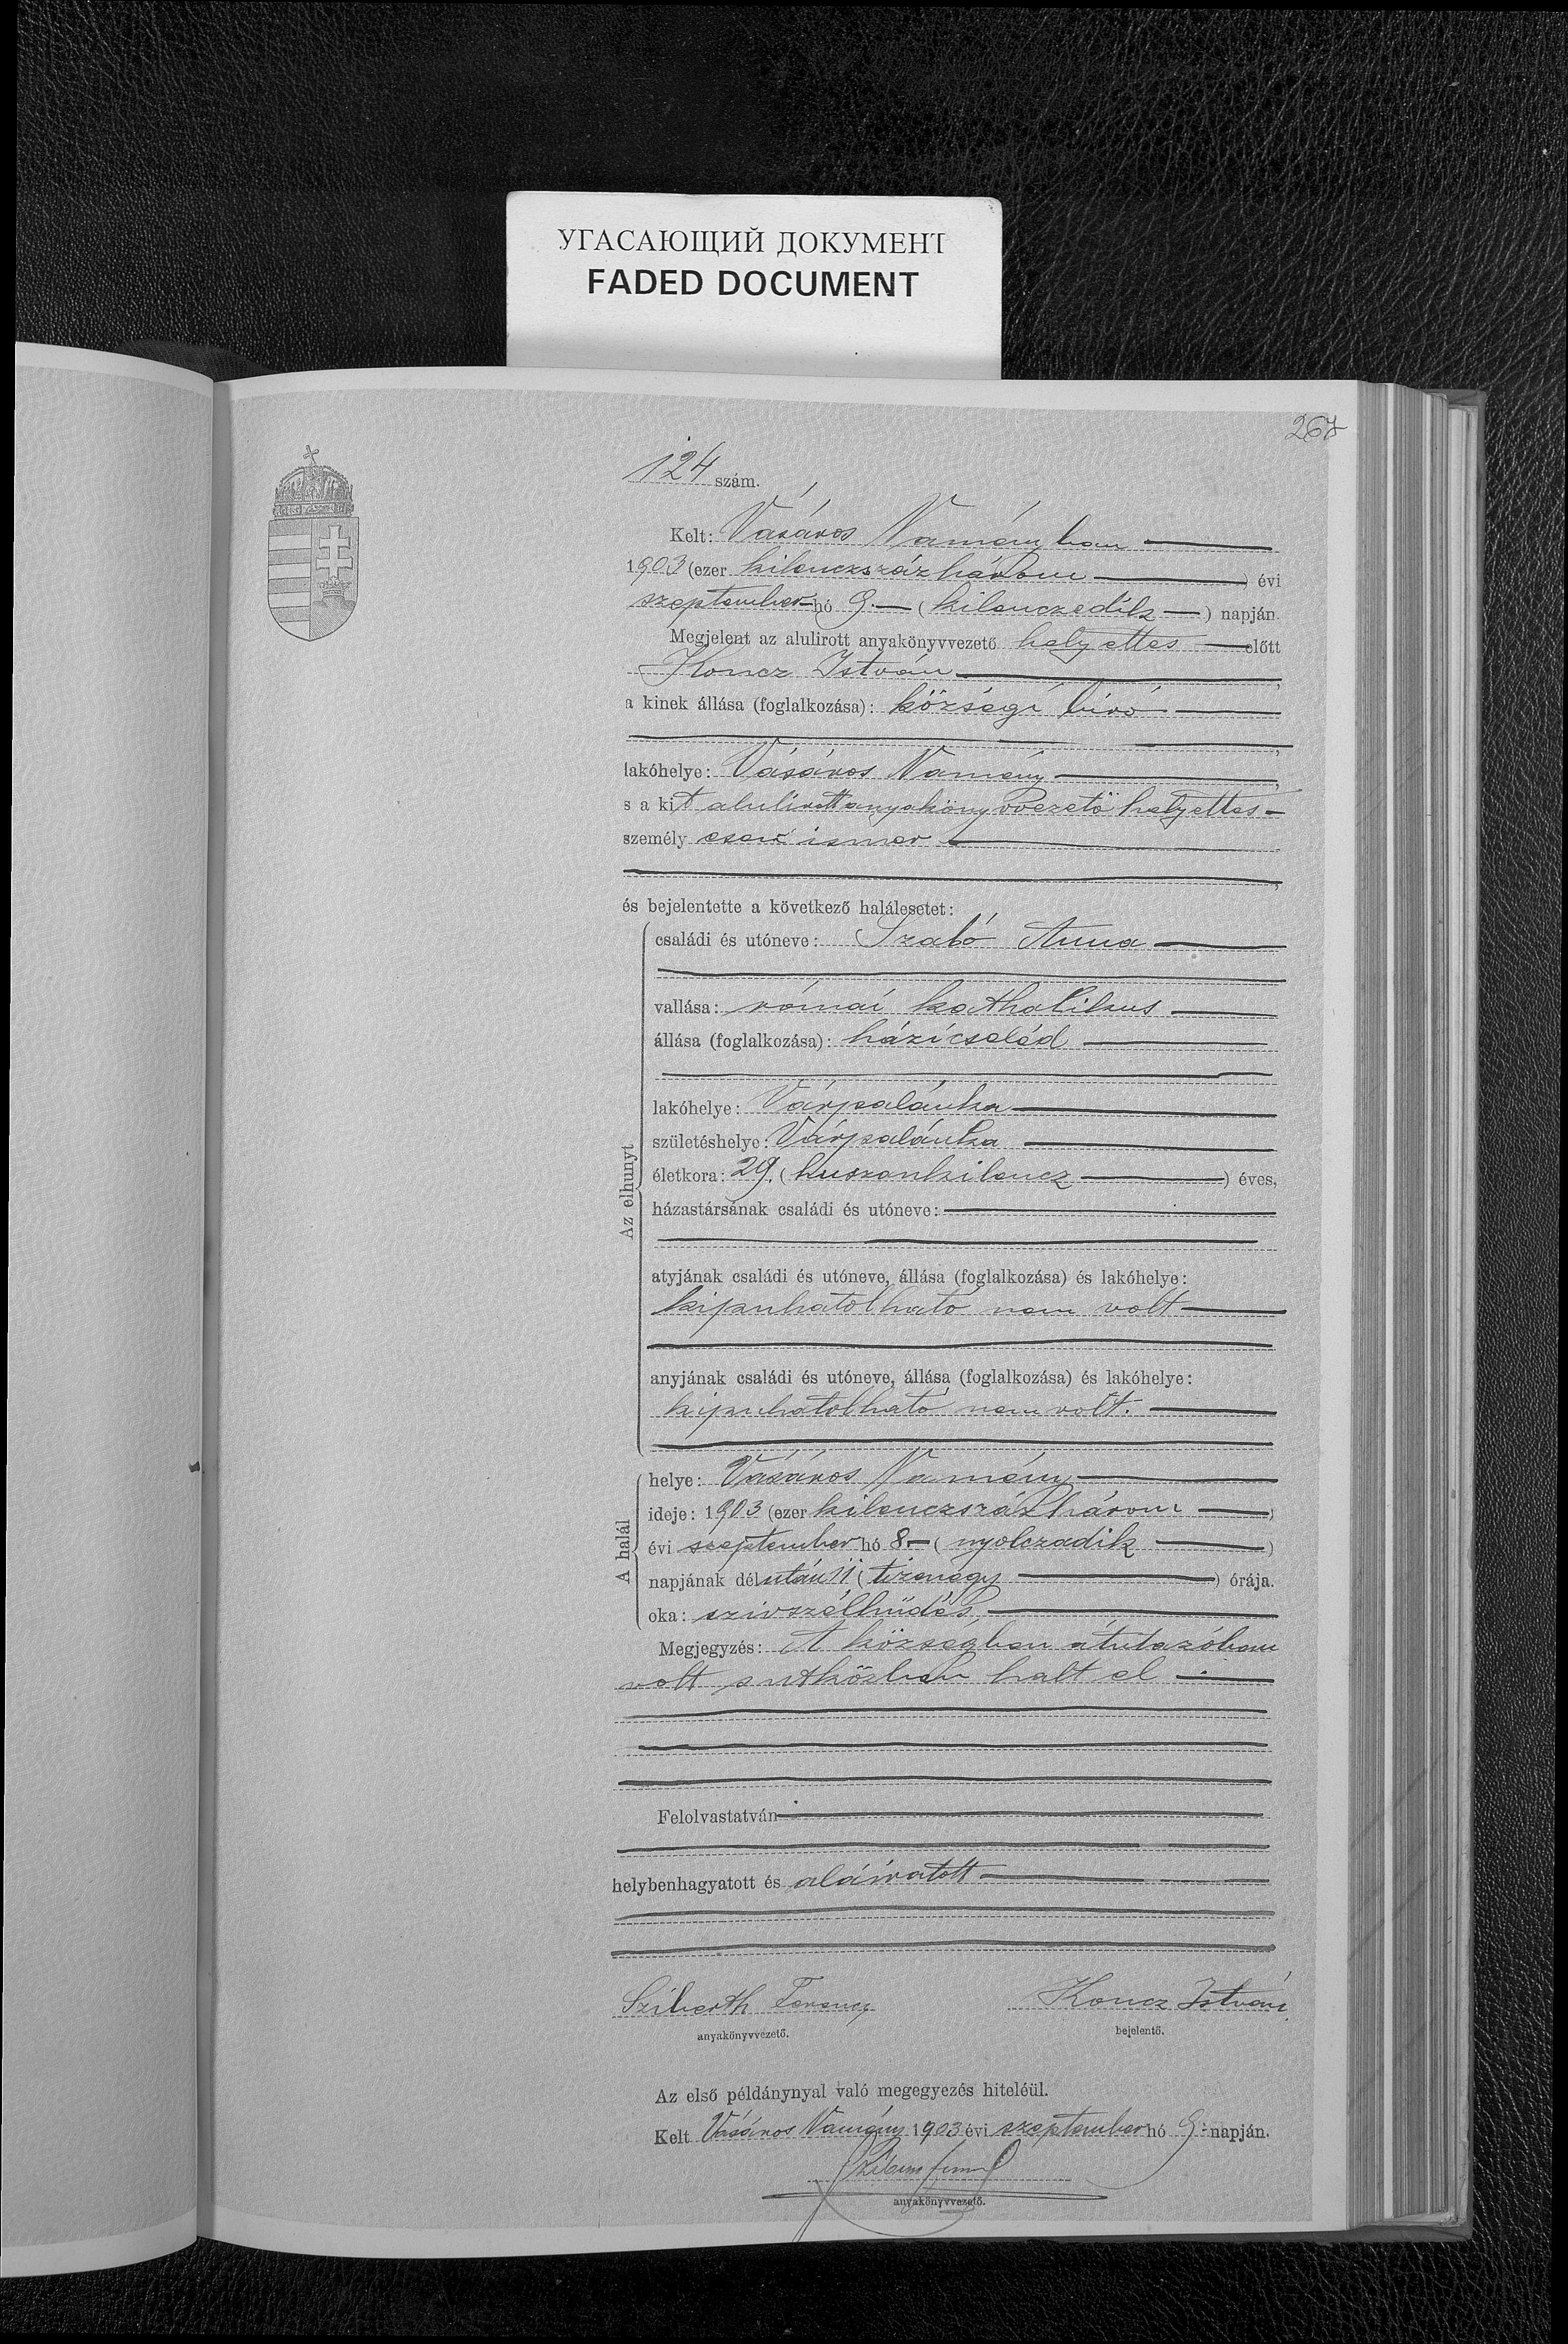 УГАСАЮЩИЙ ДОКУМЕНТ
FADED DOCUMENT
267
124 szám.
Kelt: Vásáros Naményban
1903 (ezer kilenczszázhárom ) évi
szeptember hó 9. ( kilenczedik ) napján.
Megjelent az alulirott anyakönyvvezető helyettes előtt
Koncz István ,
a kinek állása (foglalkozása): községi biró
,
lakóhelye: Vásáros Namény ,
s a kit alulirott anyakönyvvezető helyettes
személy esen ismer
,
és bejelentette a következő halálesetet:
Az elhunyt
családi és utóneve: Szabó Anna
vallása: római katholikus
állása (foglalkozása): házicseléd
lakóhelye: Várpalánka
születéshelye: Várpalánka
életkora: 29. ( huszonkilencz ) éves,
házastársának családi és utóneve:
atyjának családi és utóneve, állása (foglalkozása) és lakóhelye:
kipuhatolható nem volt
anyjának családi és utóneve, állása (foglalkozása) és lakóhelye:
kipuhatolható nem volt.
A halál
helye: Vásáros Namény
ideje: 1903 (ezer kilenczszázhárom )
évi szeptember hó 8. ( nyolczadik )
napjának délután 11 ( tizenegy ) órája.
oka: szivszélhüdés
Megjegyzés: A községben átutazóban
volt s utközben halt el
Felolvastatván
helybenhagyatott és aláiratott
Sziberth Ferencz Koncz István
anyakönyvvezető. bejelentő.
Az első példánynyal való megegyezés hiteléül.
Kelt Vásáros Namény 1903 évi szeptember hó 9. napján.
anyakönyvvezető.